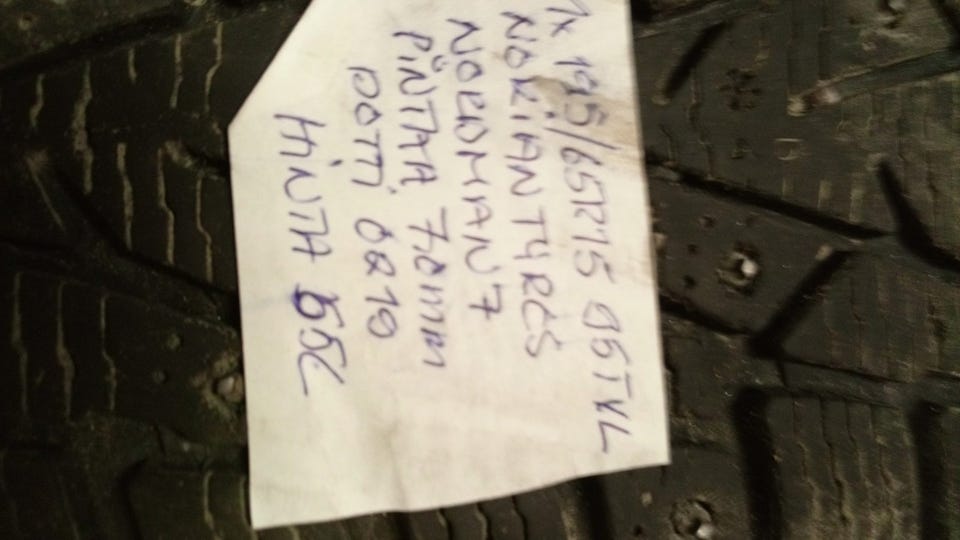 1x 195/65R15 95TXL
NOKIANTYRES
NORDMAN7
PINTAA 7.0mm
DOTTI 0219
HINTA 55€